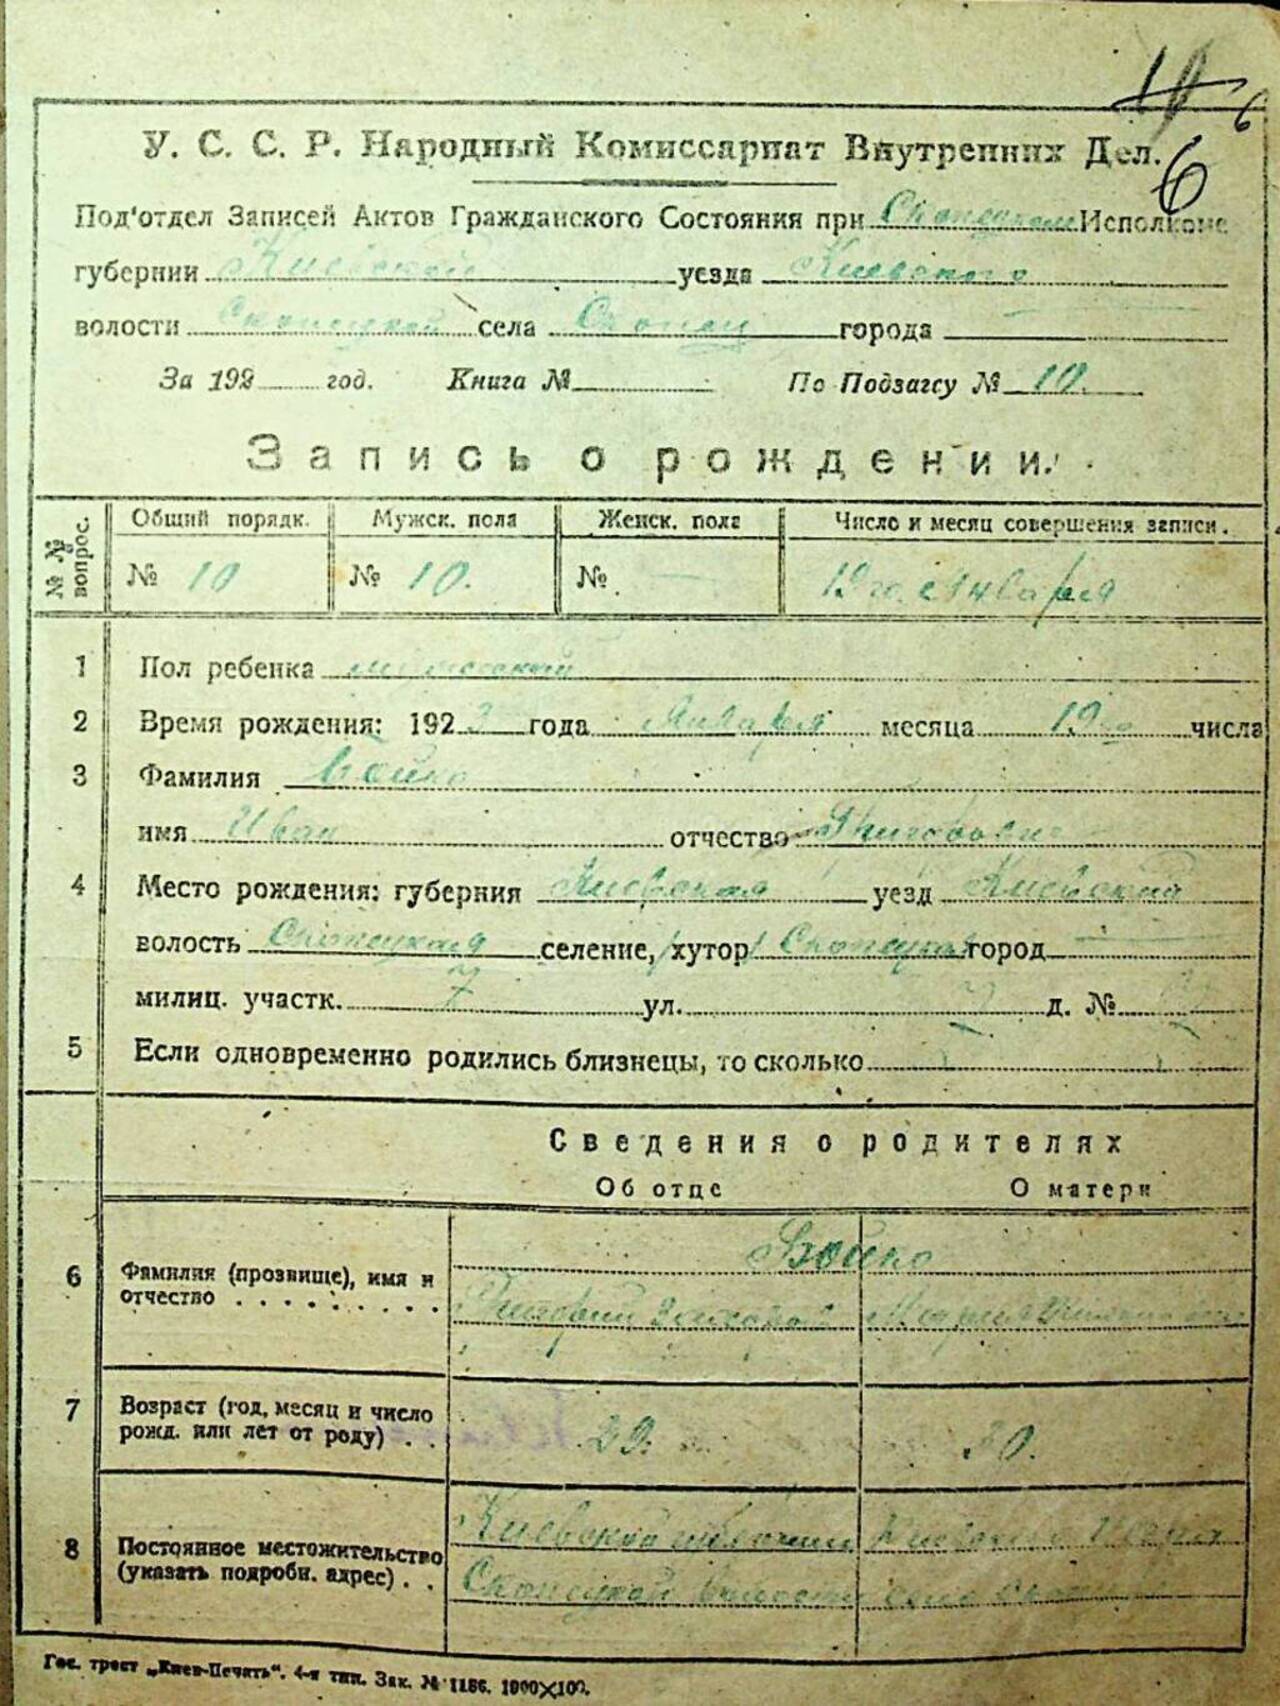 10 6
У. С. С. Р. Народный Комиссариат Внутренних Дел. 6
Под'отдел Записей Актов Гражданского Состояния при Скопецком Исполкоме
губернии Киевской уезда Киевского
волости Скопецкой села Скопец города —
За 192 год. Книга № По Подзагсу № 10.
Запись о рождении.
№ № вопрос. Общий порядк. Мужск. пола Женск. пола Число и месяц совершения записи.
№ 10 № 10. № — 19го Января
1 Пол ребенка мужской
2 Время рождения: 1923 года Января месяца 19го числа
3 Фамилия Бойко
имя Иван отчество
4 Место рождения: губерния Киевская уезд Киевский
волость Скопецкая селение, /хутор/ город —
милиц. участк. 7 ул. д. №
5 Если одновременно родились близнецы, то сколько
Сведения о родителях
Об отце О матери
6 Фамилия (прозвище), имя и Бойко
отчество . . . . . . . . . Григорий Мария
7 Возраст (год, месяц и число
рожд. или лет от роду) . . 29. 30.
8 Постоянное местожительство Киевской губернии Киевского уезда
(указать подробн. адрес) . . Скопецкой волости село
Гос. трест „Киев-Печать“. 4-я тип. Зак. № 1186. 1000×100.